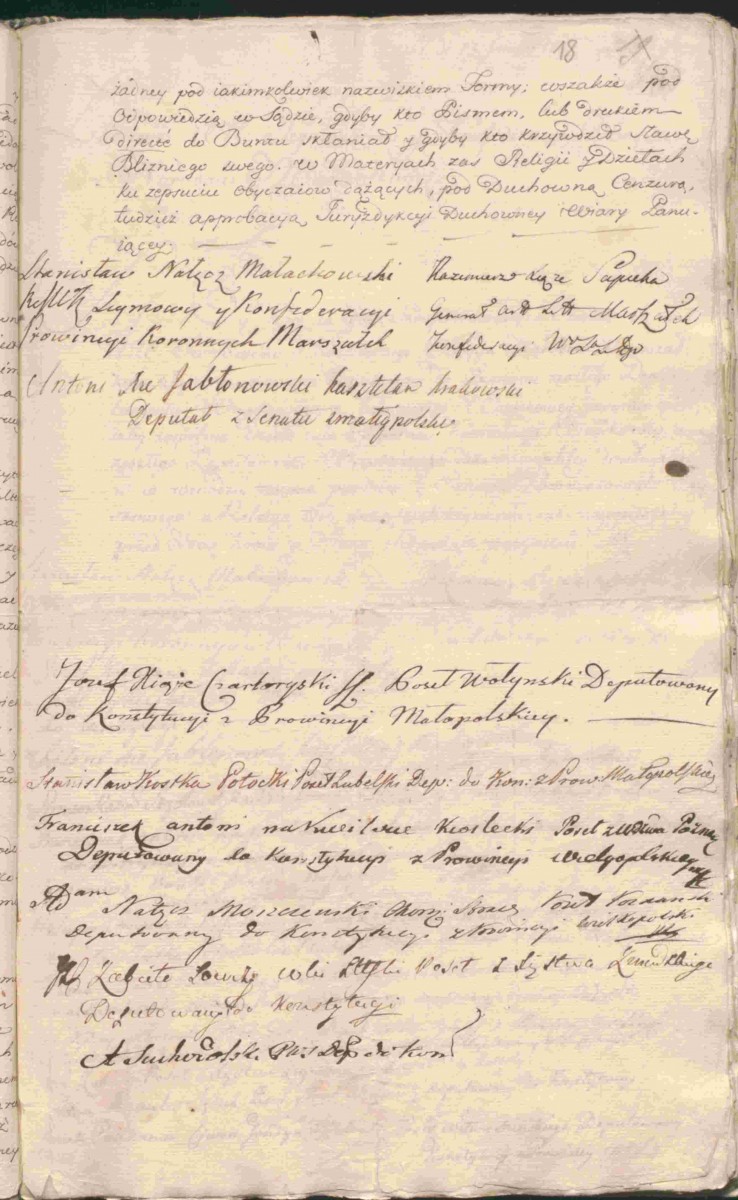 18
żadney pod iakimkolwiek nazwiskiem Formy; wszakże pod
Odpowiedzią w Sądzie, gdyby kto Pismem, lub drukiem
directé do Buntu skłaniał y gdyby kto krzywdził Sławę
Blizniego swego. w Materyach zas Religii y Dziełach
ku zepsuciu Obyczaiow dążących, pod Duchowną Cenzurą,
tudzież approbacyą Juryzdykcyi Duchowney Wiary Panu-
iącey.
Stanisław Nałęcz Małachowski
Seymowy y Konfederacyi
Prowincyi Koronnych Marszałek
Kazimierz Xiąże Sapieha
Generał Art Litt Marszałek
Konfederacyi
Antoni Xże Jabłonowski kasztelan krakowski
Deputat z Senatu z małeypolski
Jozef Xiąże Czartoryski Poseł Wołynski Deputowany
do Konstytucyi z Prowincyi Małopolskiey.
Stanisław Kostka Potocki Poseł Lubelski Dep: do Kon: z Prow: Małopolskiey
Franciszek antoni na Kwilczu Kwilecki Poseł z Wdztwa Pozna:
Deputowany do Konstytucyi z Prowincyi wielgopolskiey
Adam Nałęcz Moszczenski Poseł Poznanski
Deputowany do Konstytucyi z Prowincyi wielkopolski
Zabiełło Łowczy Poseł z Xięstwa Zmudzkiego
Deputowany do Konstytucyi
Dep do Kon